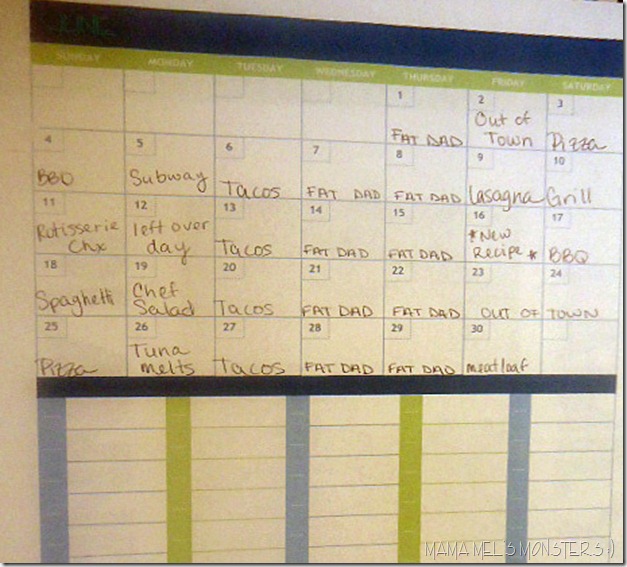 JUNE
SUNDAY MONDAY TUESDAY WEDNESDAY THURSDAY FRIDAY SATURDAY
1 2 3
FAT DAD
Out of
Town
Pizza
4 5 6 7 8 9 10
BBQ
Subway
Tacos
FAT DAD
FAT DAD
Lasagna
Grill
11 12 13 14 15 16 17
Rotisserie
Chx
left over
day
Tacos
FAT DAD
FAT DAD
*New
Recipe *
BBQ
18 19 20 21 22 23 24
Spaghetti
Chef
Salad
Tacos
FAT DAD
FAT DAD
OUT OF TOWN
25 26 27 28 29 30
Pizza
Tuna
melts
Tacos
FAT DAD
FAT DAD
meatloaf
MAMA MEL'S MONSTERS :)